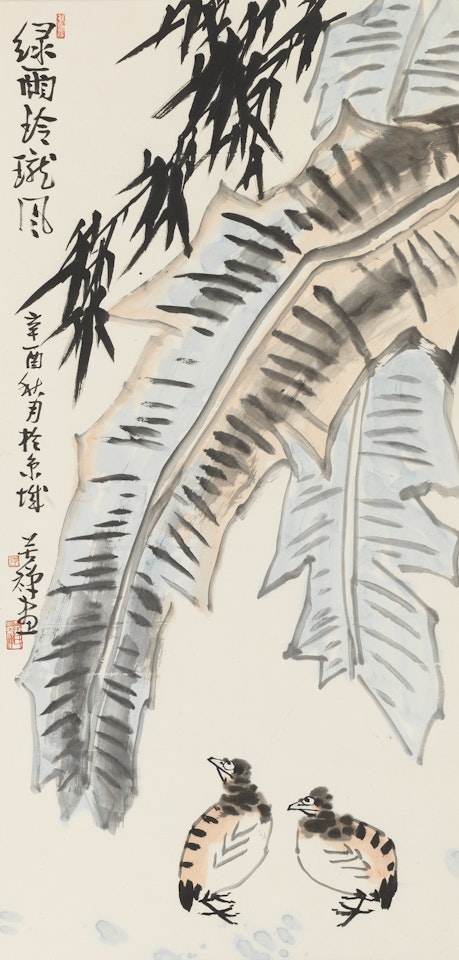 绿雨玲珑风
辛酉秋月於京城
苦禅画